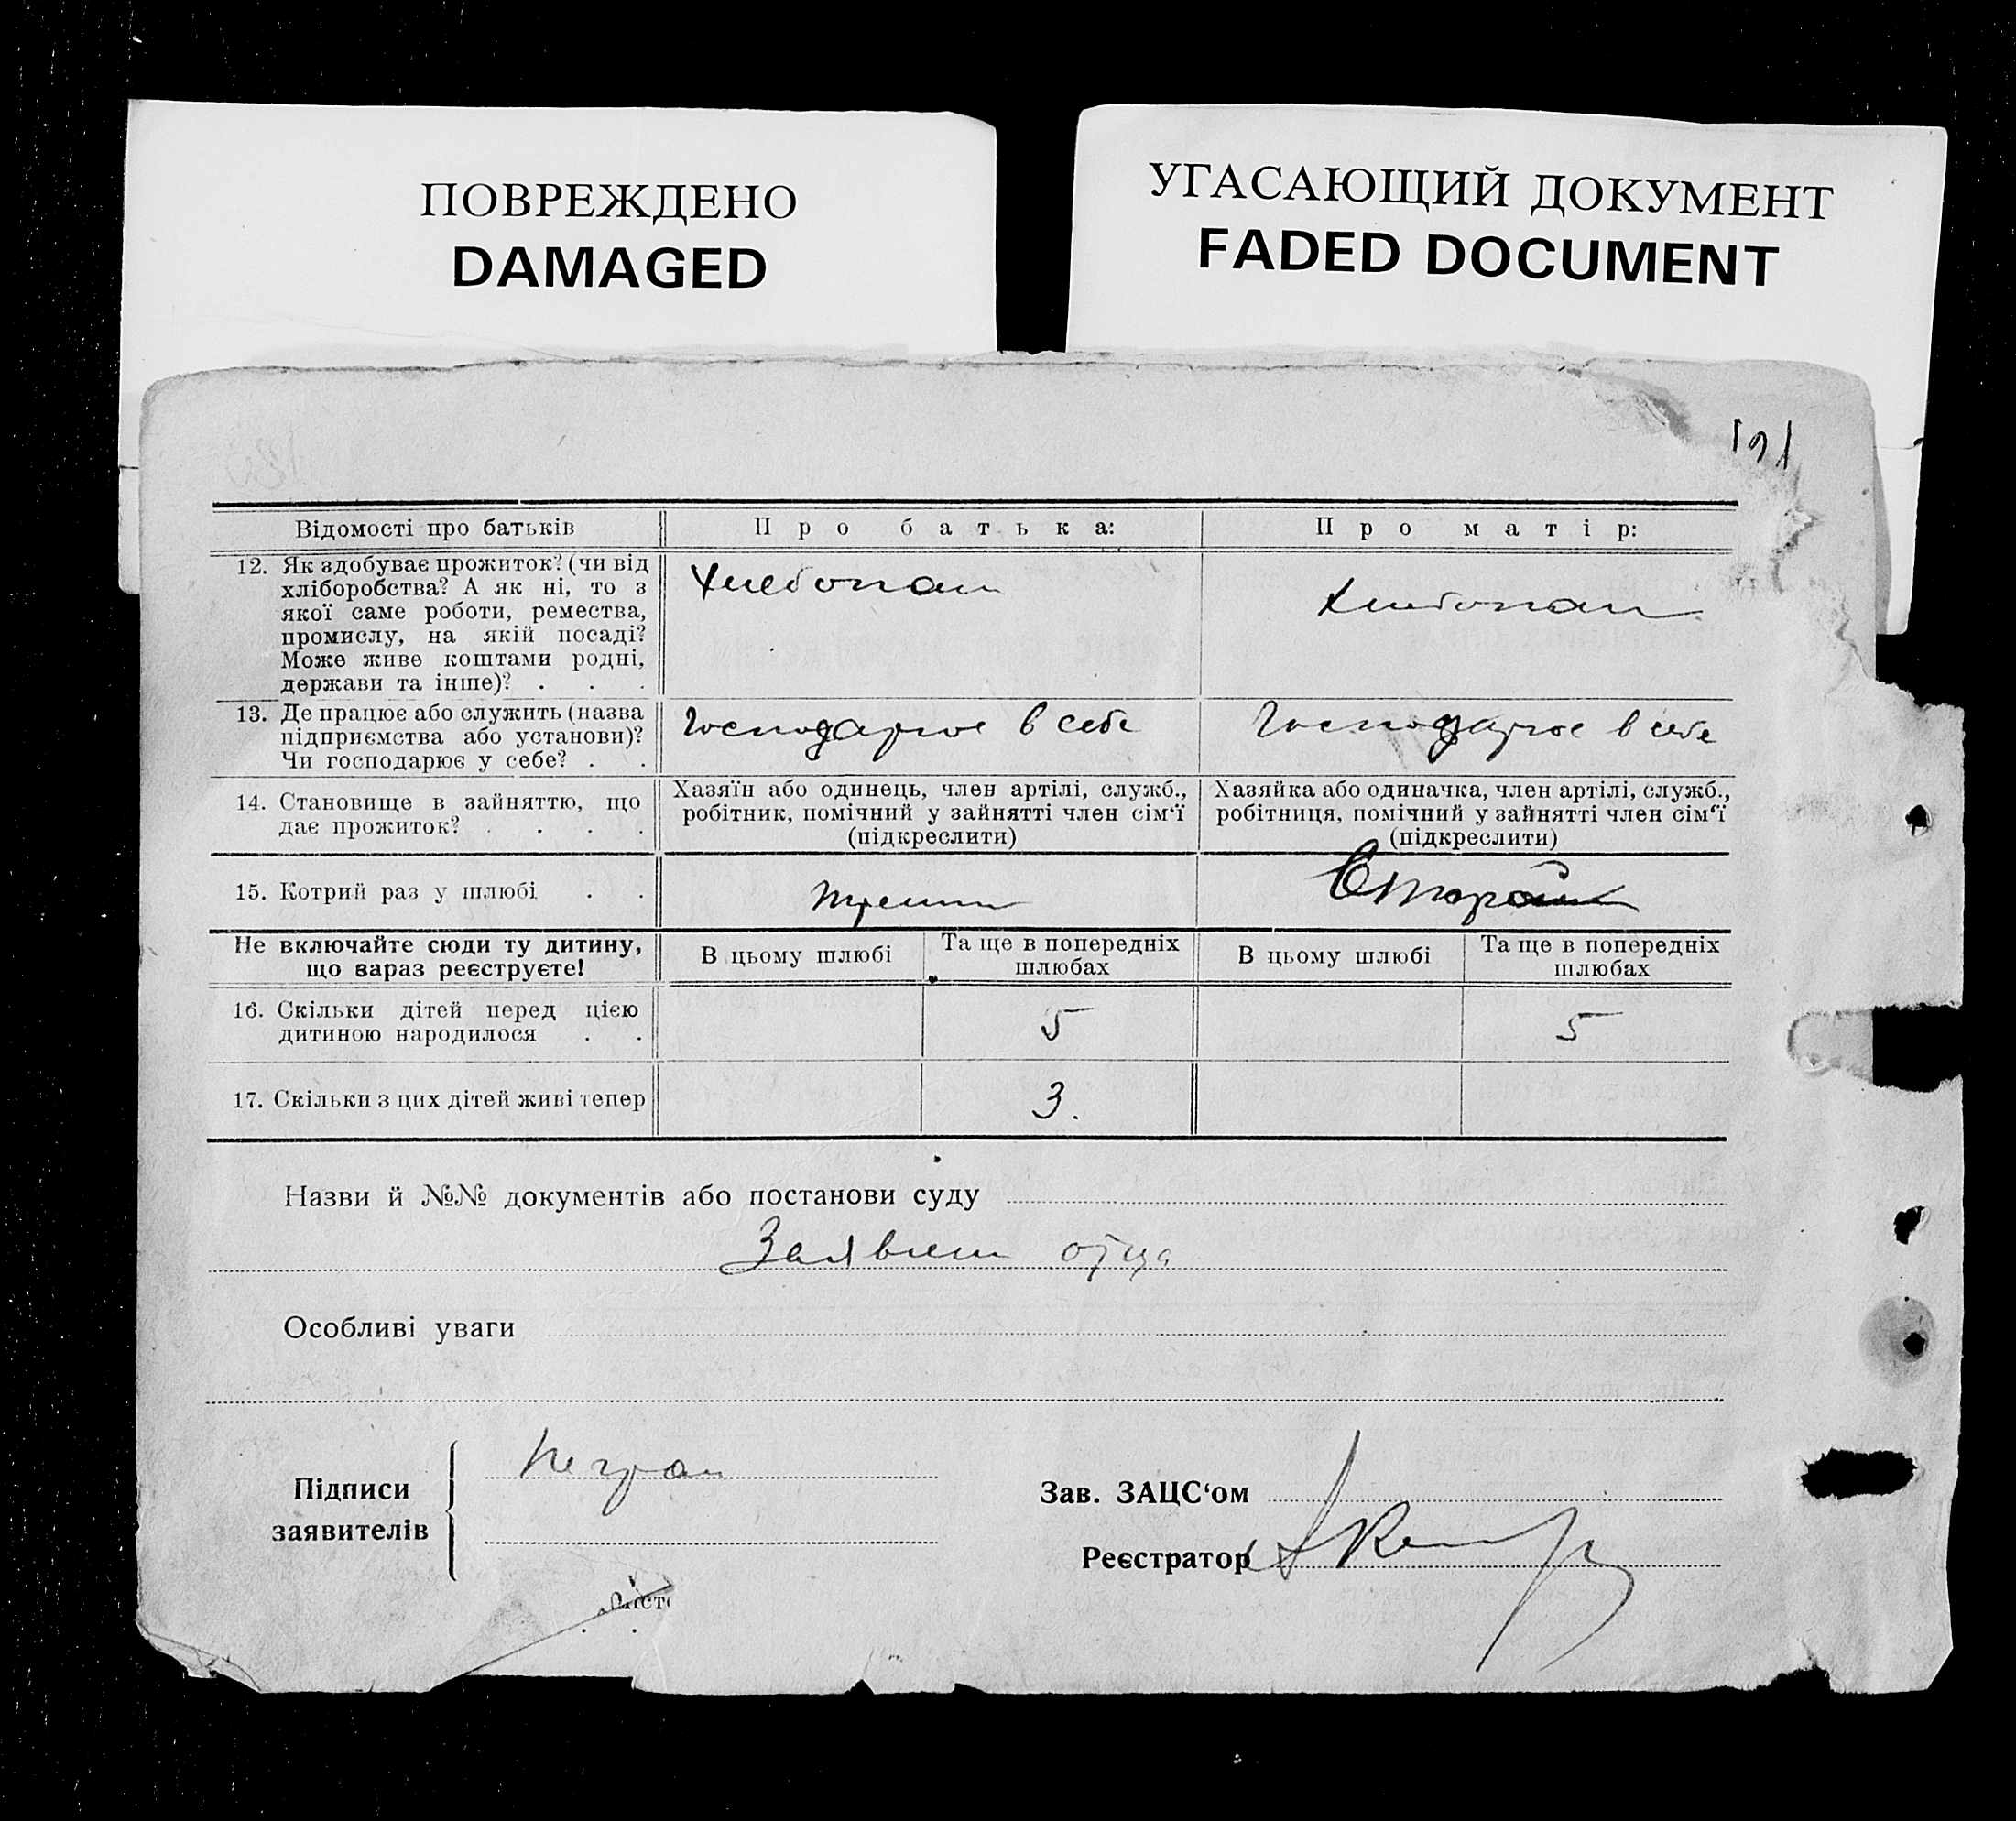 ПОВРЕЖДЕНО
DAMAGED
УГАСАЮЩИЙ ДОКУМЕНТ
FADED DOCUMENT
191
Відомості про батьків
Про батька:
Про матір:
12. Як здобуває прожиток? (чи від
хліборобства? А як ні, то з
якої саме роботи, ремества,
промислу, на якій посаді?
Може живе коштами родні,
держави та інше)? . . .
Хлебопаш
Хлебопаш
13. Де працює або служить (назва
підприємства або установи)?
Чи господарює у себе? . .
Господарює в себе
Господарює в себе
14. Становище в зайняттю, що
дає прожиток? . . . .
Хазяїн або одинець, член артілі, служб.,
робітник, помічний у зайнятті член сім‘ї
(підкреслити)
Хазяйка або одиначка, член артілі, служб.,
робітниця, помічний у зайнятті член сім‘ї
(підкреслити)
15. Котрий раз у шлюбі . .
Не включайте сюди ту дитину,
що зараз реєструєте!
В цьому шлюбі
Та ще в попередніх
шлюбах
В цьому шлюбі
Та ще в попередніх
шлюбах
16. Скільки дітей перед цією
дитиною народилося . .
5
5
17. Скільки з цих дітей живі тепер
3.
Назви й №№ документів або постанови суду
Заявлен отца
Особливі уваги
Підписи
заявителів
Неграм
Зав. ЗАЦС‘ом
Реєстратор